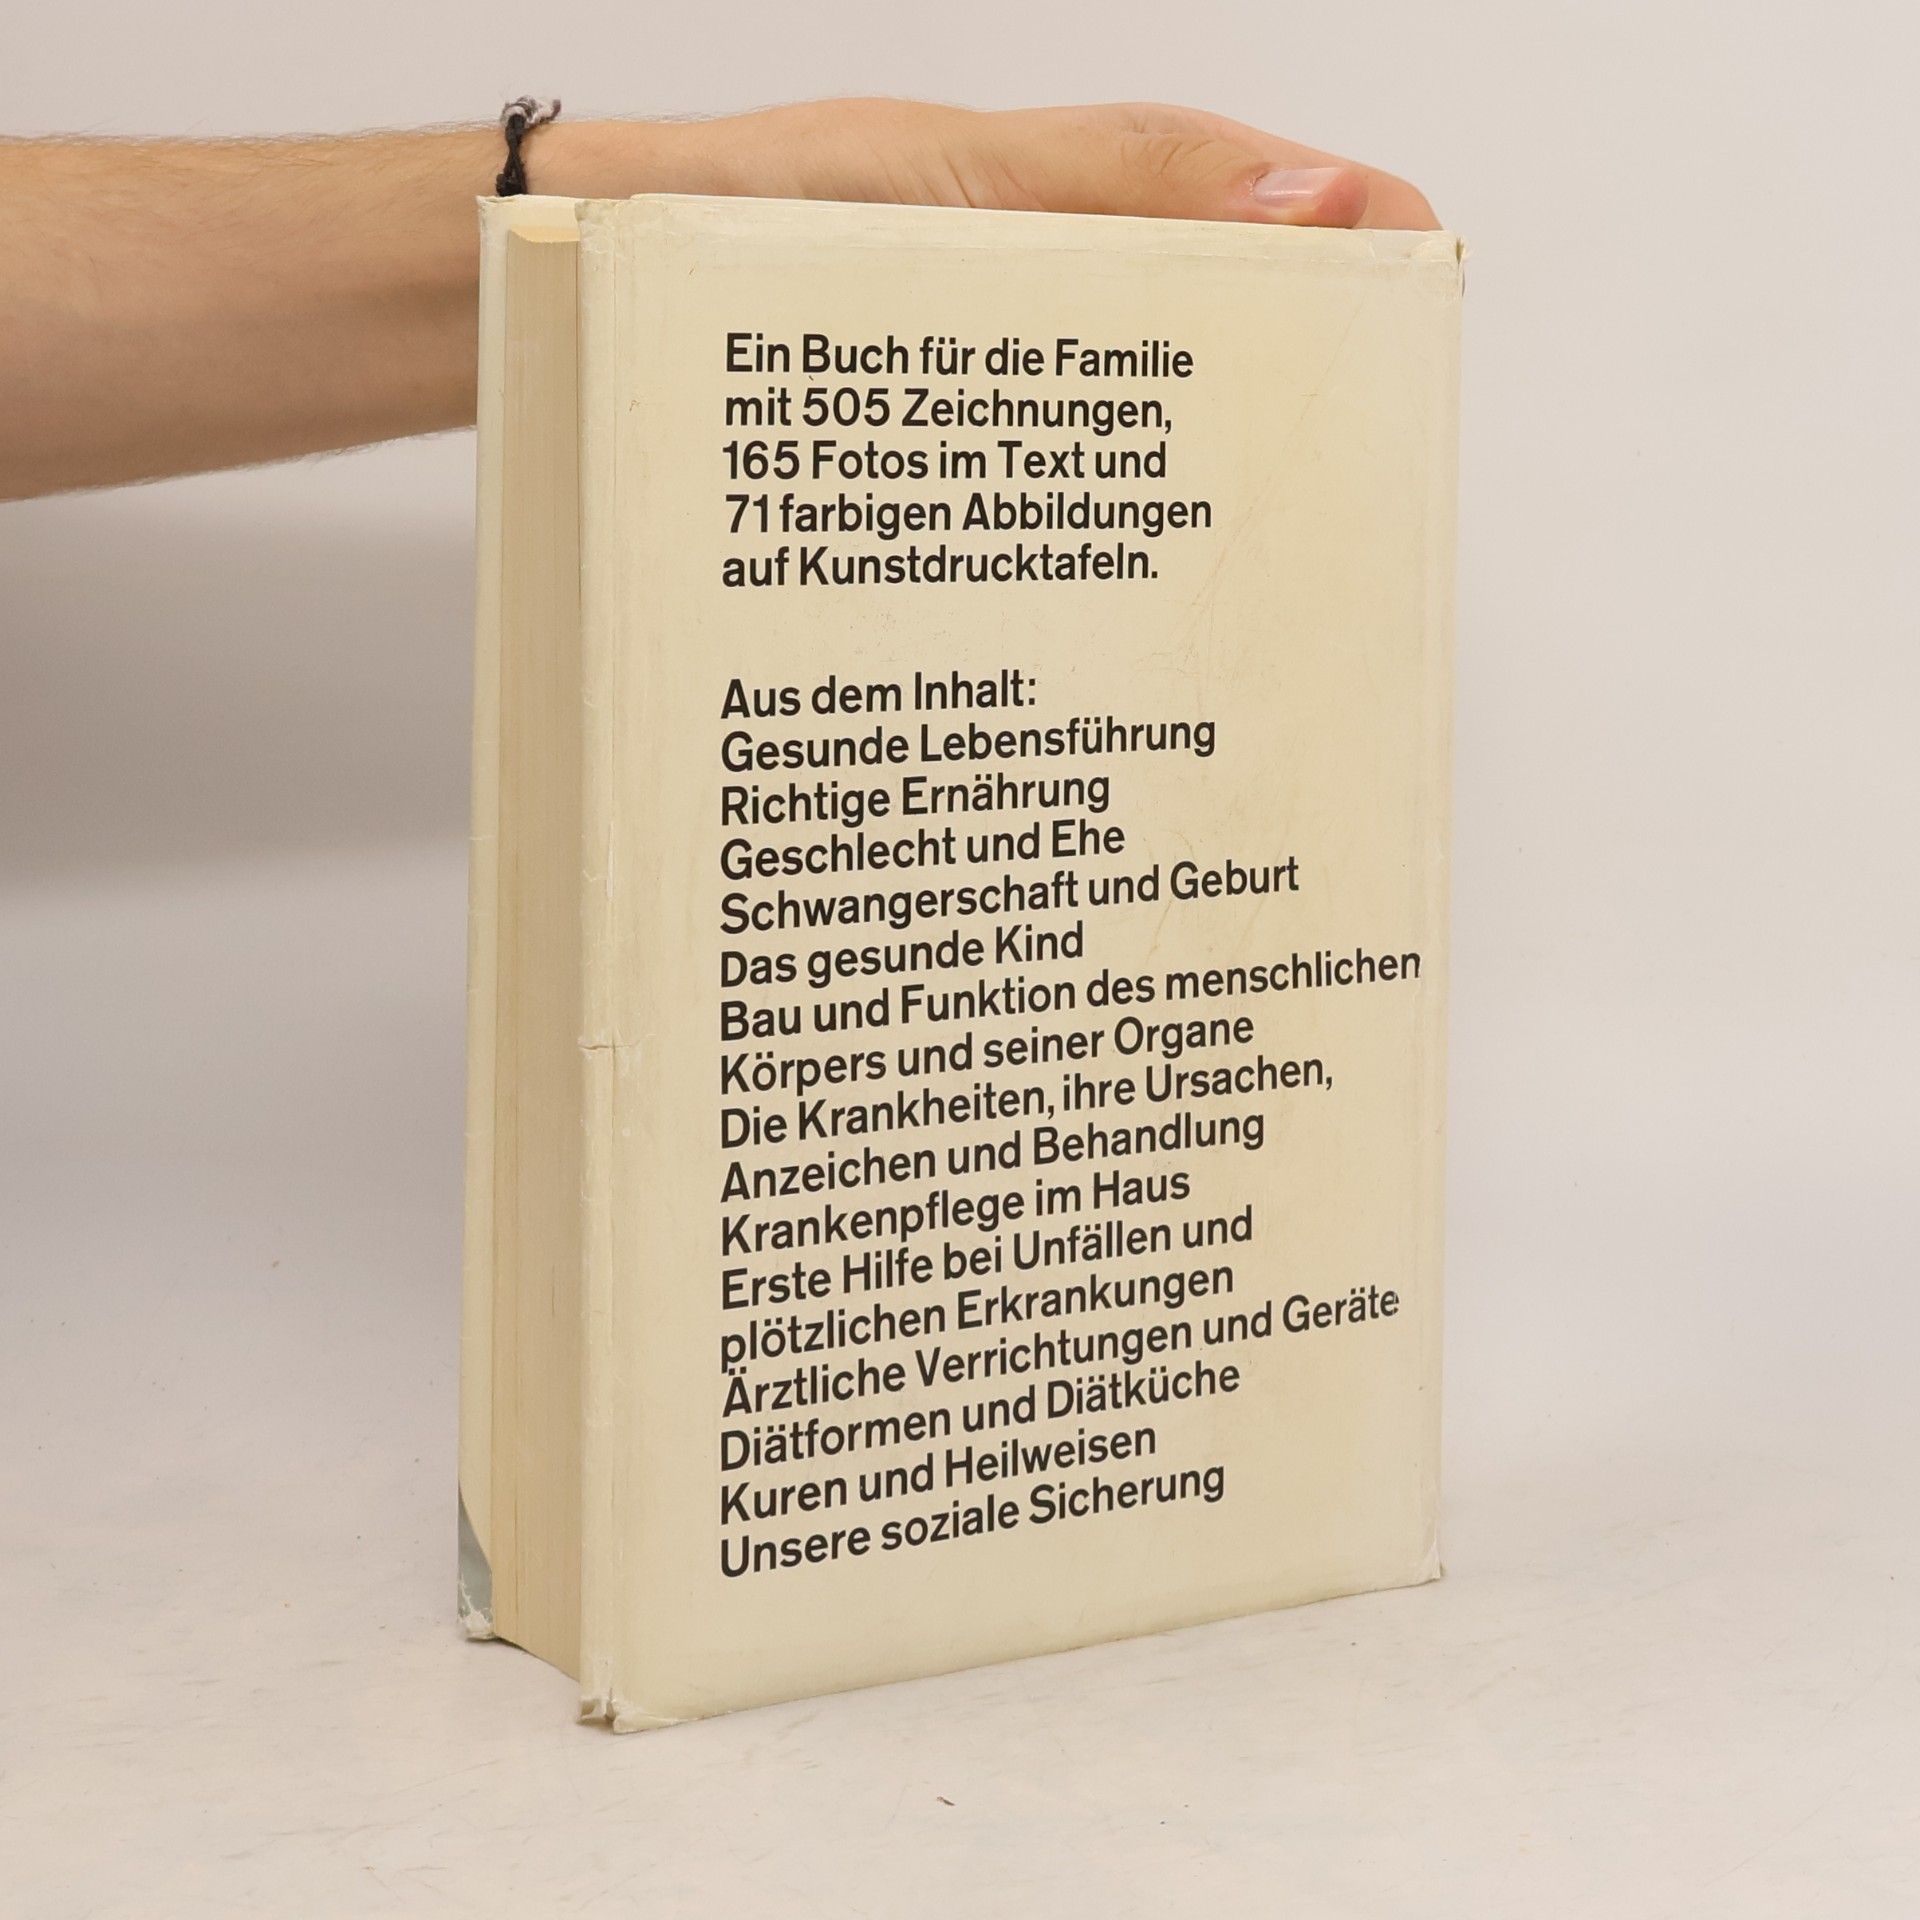 Ein Buch für die Familie
mit 505 Zeichnungen,
165 Fotos im Text und
71 farbigen Abbildungen
auf Kunstdrucktafeln.
Aus dem Inhalt:
Gesunde Lebensführung
Richtige Ernährung
Geschlecht und Ehe
Schwangerschaft und Geburt
Das gesunde Kind
Bau und Funktion des menschlichen
Körpers und seiner Organe
Die Krankheiten, ihre Ursachen,
Anzeichen und Behandlung
Krankenpflege im Haus
Erste Hilfe bei Unfällen und
plötzlichen Erkrankungen
Ärztliche Verrichtungen und Geräte
Diätformen und Diätküche
Kuren und Heilweisen
Unsere soziale Sicherung